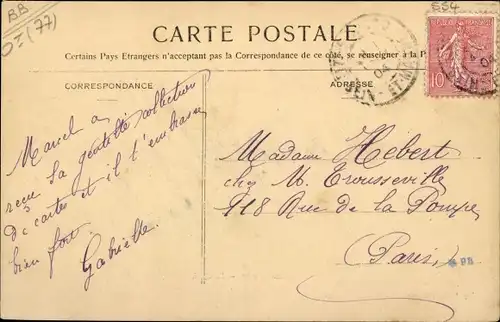 BB
OI (77)
554
CARTE POSTALE
Certains Pays Etrangers n'acceptant pas la Correspondance de ce côté, se renseigner à la P
CORRESPONDANCE
ADRESSE
10
04
Marcel a
reçu sa gentille collection
de cartes et il t'embrasse
bien fort.
Gabrielle
Madame Hebert
chez M. Trousseville
118 Rue de la Pompe
(Paris)
PB